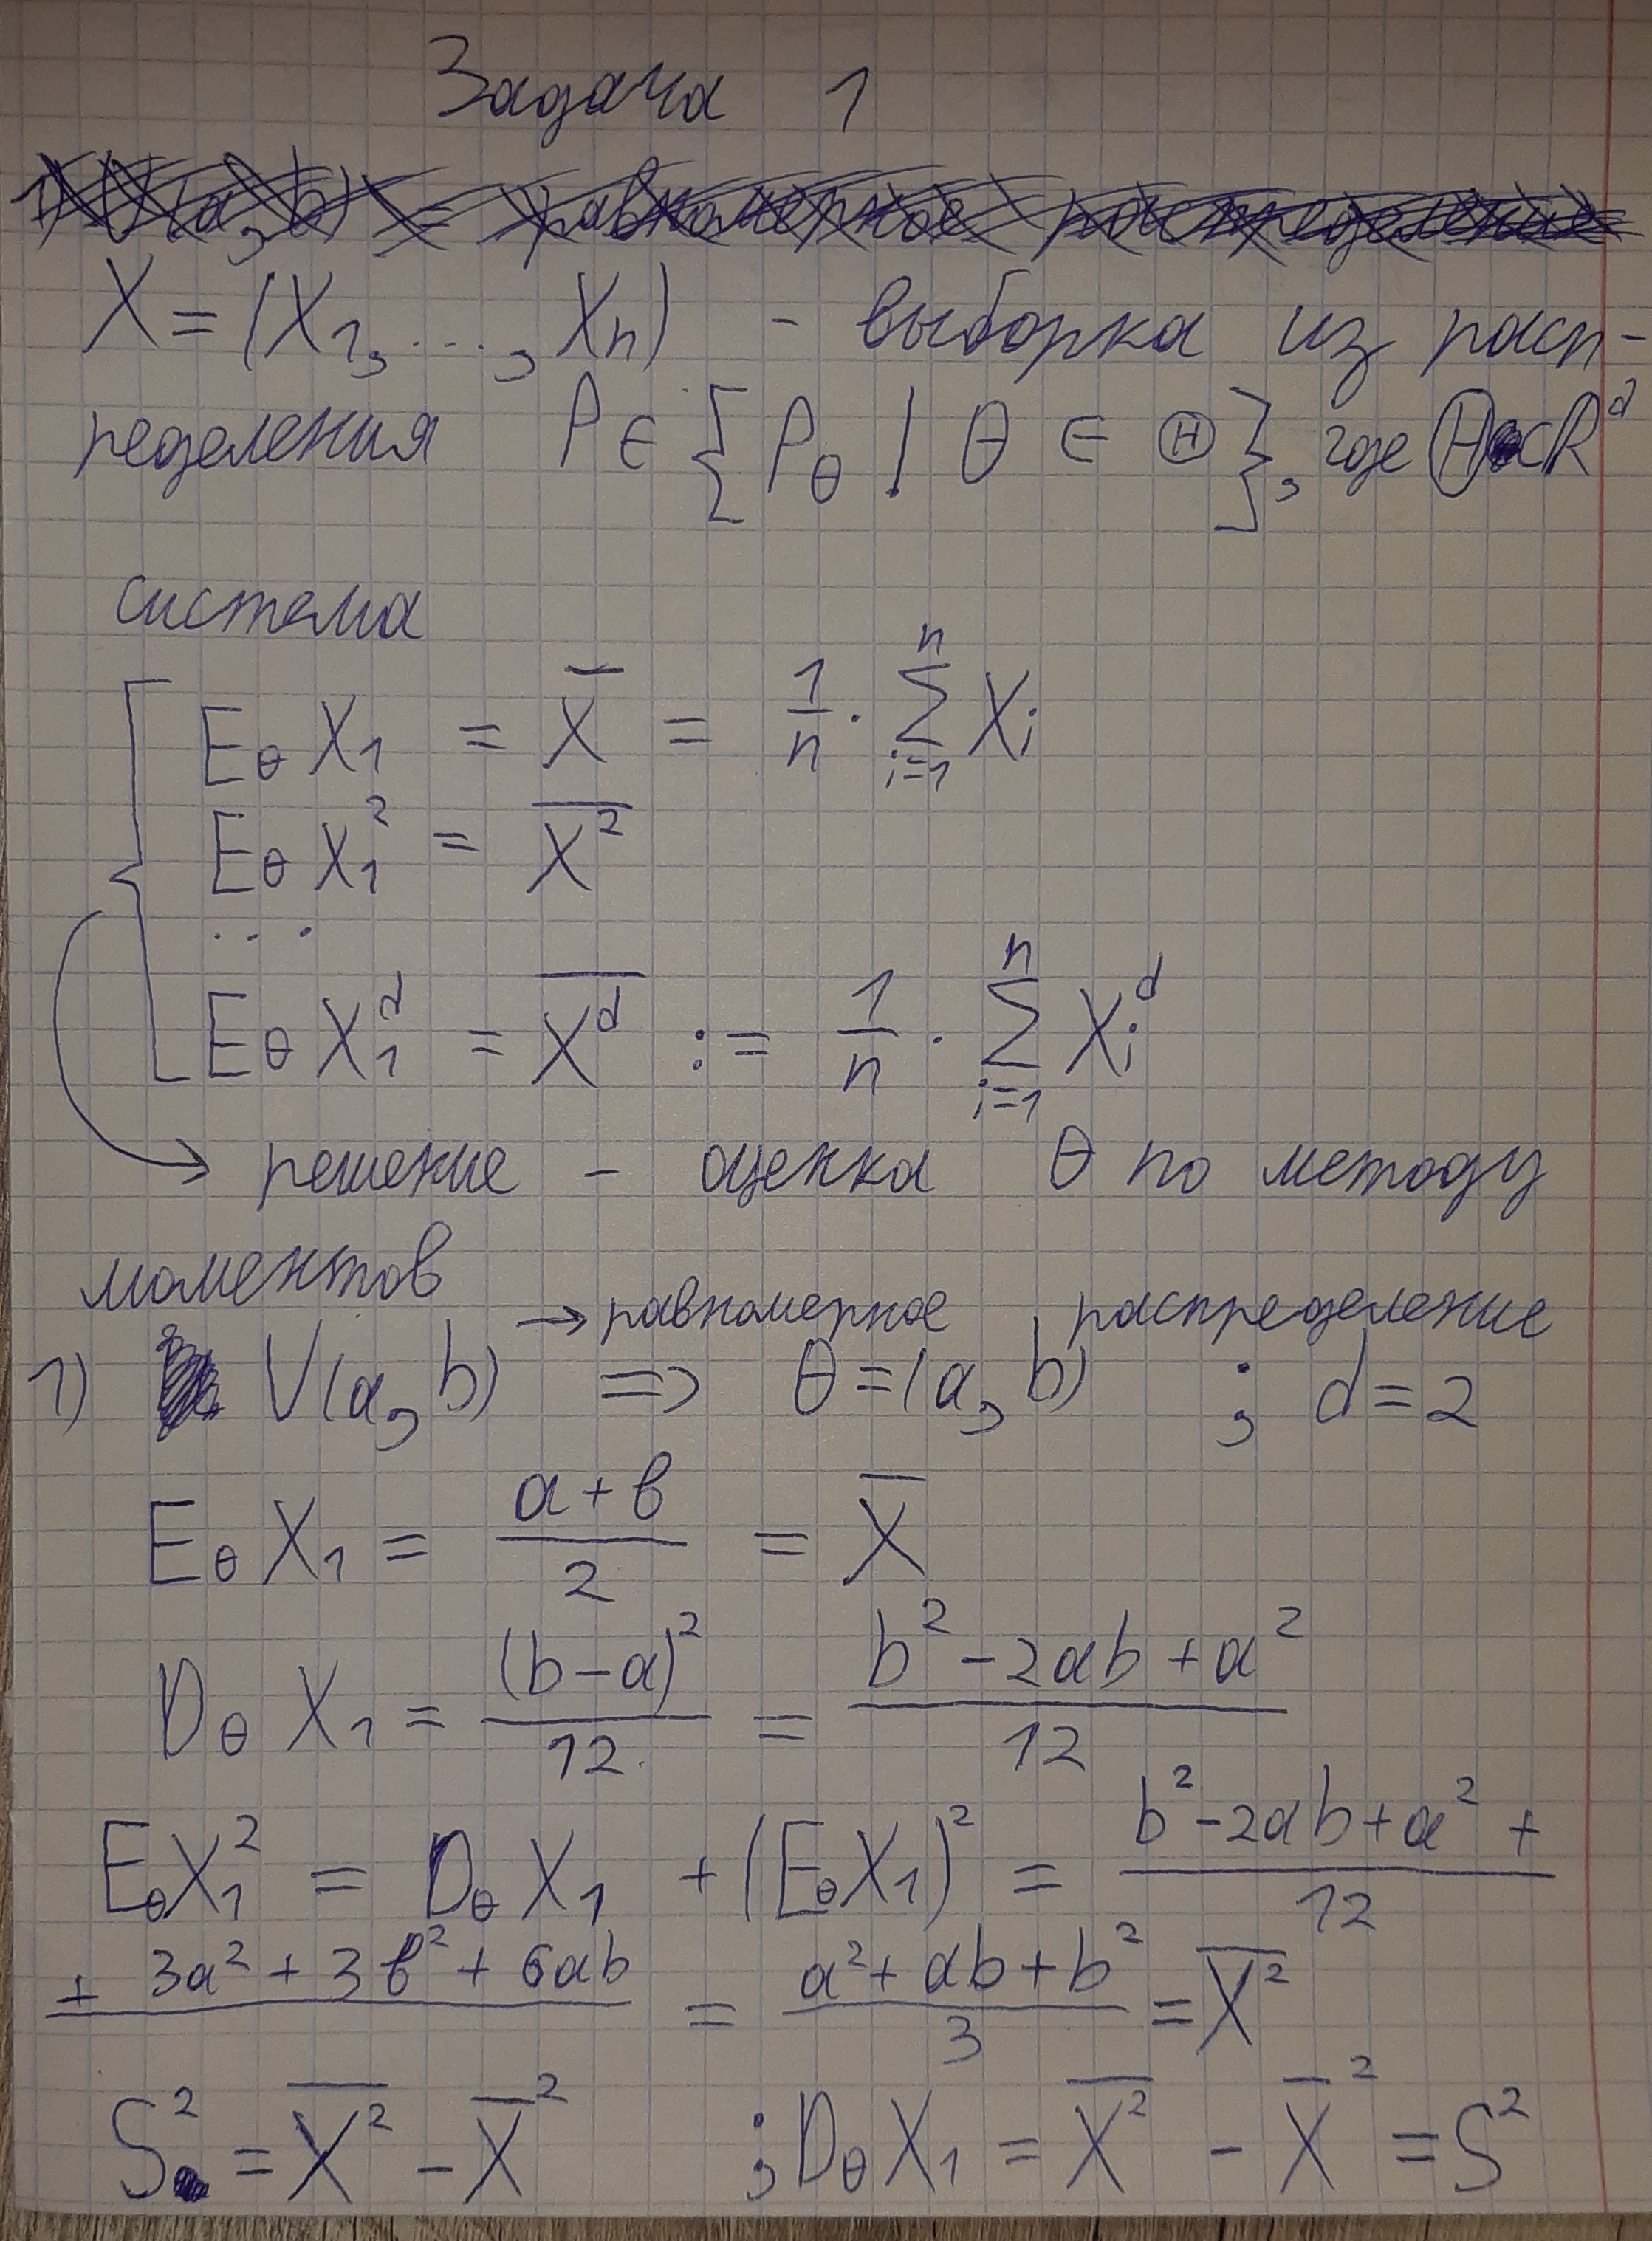 Задача 1
1) U(a, b) = равномерное распределение
X = (X₁, ..., Xn) - выборка из расп-
ределения P ∈ {Pθ | θ ∈ Θ}, где Θ ⊂ R^d
система
EθX₁ = X̅ = 1/n · Σ_{i=1}^{n} Xi
EθX₁² = \overline{X²}
...
EθX₁^d = \overline{X^d} := 1/n · Σ_{i=1}^{n} Xi^d
→ решение - оценка θ по методу
моментов
→ равномерное распределение
1) U(a, b) => θ = (a, b) ; d = 2
EθX₁ = (a + b)/2 = X̅
DθX₁ = (b - a)²/12 = (b² - 2ab + a²)/12
EθX₁² = DθX₁ + (EθX₁)² = (b² - 2ab + a² +)/12
+ 3a² + 3b² + 6ab = (a² + ab + b²)/3 = \overline{X²}
S² = \overline{X²} - X̅² ; DθX₁ = \overline{X²} - X̅² = S²